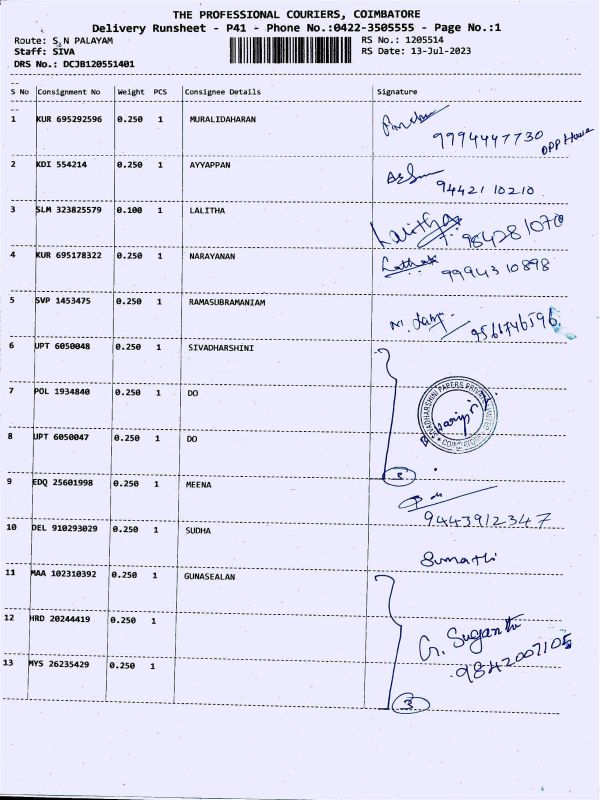 THE PROFESSIONAL COURIERS, COIMBATORE
Delivery Runsheet - P41 - Phone No.:0422-3505555 - Page No.:1
Route: S.N PALAYAM RS No.: 1205514
Staff: SIVA RS Date: 13-Jul-2023
DRS No.: DCJB120551401
S No Consignment No Weight PCS Consignee Details Signature
1 KUR 695292596 0.250 1 MURALIDAHARAN
9994447730 OPP House
2 KDI 554214 0.250 1 AYYAPPAN
94421 10210
3 SLM 323825579 0.100 1 LALITHA Lalitha
4 KUR 695178322 0.250 1 NARAYANAN
9994310898
5 SVP 1453475 0.250 1 RAMASUBRAMANIAM
9566746596
6 UPT 6050048 0.250 1 SIVADHARSHINI
7 POL 1934840 0.250 1 DO
SIVADHARSHINI PAPERS PRIVATE LIMITED
COIMBATORE
8 UPT 6050047 0.250 1 DO
3
9 EDQ 25601998 0.250 1 MEENA
9443912347
10 DEL 910293029 0.250 1 SUDHA
Sumathi
11 MAA 102310392 0.250 1 GUNASEALAN
12 HRD 20244419 0.250 1
G. Suganth
13 MYS 26235429 0.250 1
9842007105
3